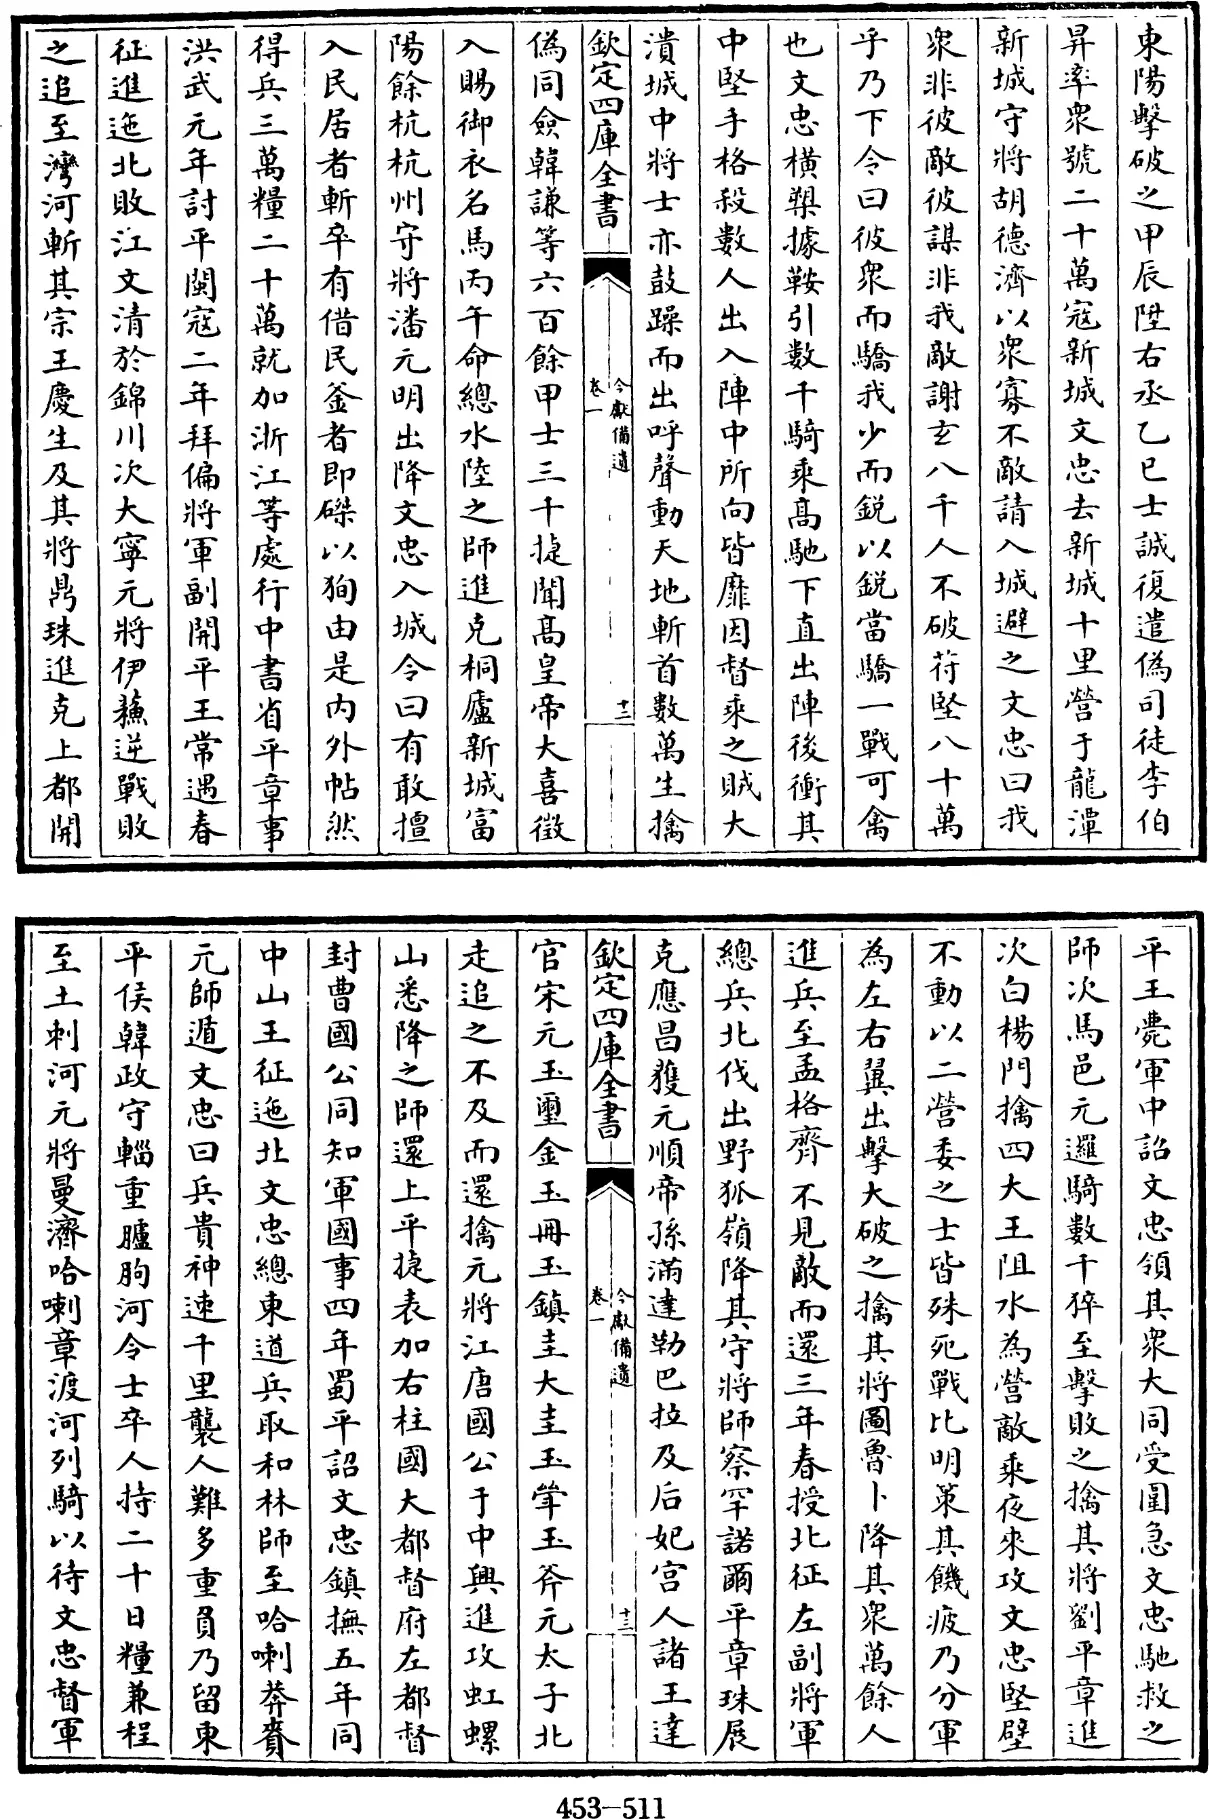 東陽擊破之甲辰陞右丞乙已士誠復遣偽司徒李伯
昇率衆號二十萬寇新城文忠去新城十里營于龍潭
新城守將胡德濟以衆寡不敵請入城避之文忠曰我
衆非彼敵彼謀非我敵謝玄八千人不破苻堅八十萬
乎乃下令曰彼衆而驕我少而銳以銳當驕一戰可禽
也文忠橫槊據鞍引數千騎乘髙馳下直出陣後衝其
中堅手格殺數人出入陣中所向皆靡因督乘之賊大
潰城中將士亦鼓躁而出呼聲動天地斬首數萬生擒
欽定四庫全書
今獻備遺
卷一
十二
偽同僉韓謙等六百餘甲士三千捷聞髙皇帝大喜徵
入賜御衣名馬丙午命總水陸之師進克桐廬新城富
陽餘杭杭州守將潘元明出降文忠入城令曰有敢擅
入民居者斬卒有借民釜者即磔以狥由是内外帖然
得兵三萬糧二十萬就加浙江等處行中書省平章事
洪武元年討平閩寇二年拜偏將軍副開平王常遇春
征進迤北敗江文清於錦川次大寧元將伊蘓逆戰敗
之追至灣河斬其宗王慶生及其將鼎珠進克上都開
平王薨軍中詔文忠領其衆大同受圍急文忠馳救之
師次馬邑元邏騎數千猝至擊敗之擒其將劉平章進
次白楊門擒四大王阻水為營敵乘夜來攻文忠堅壁
不動以二營委之士皆殊死戰比明策其饑疲乃分軍
為左右翼出擊大破之擒其將圖魯卜降其衆萬餘人
進兵至孟格齊不見敵而還三年春授北征左副將軍
總兵北伐出野狐嶺降其守將師察罕諾爾平章珠展
克應昌獲元順帝孫滿達勒巴拉及后妃宫人諸王達
欽定四庫全書
今獻備遺
卷一
十三
官宋元玉璽金玉冊玉鎮圭大圭玉斝玉斧元太子北
走追之不及而還擒元將江唐國公于中興進攻虹螺
山悉降之師還上平捷表加右柱國大都督府左都督
封曹國公同知軍國事四年蜀平詔文忠鎮撫五年同
中山王征迤北文忠總東道兵取和林師至哈喇莽賚
元師遁文忠曰兵貴神速千里襲人難多重負乃留東
平侯韓政守輜重臚朐河令士卒人持二十日糧兼程
至土剌河元將曼濟哈喇章渡河列騎以待文忠督軍
453-511